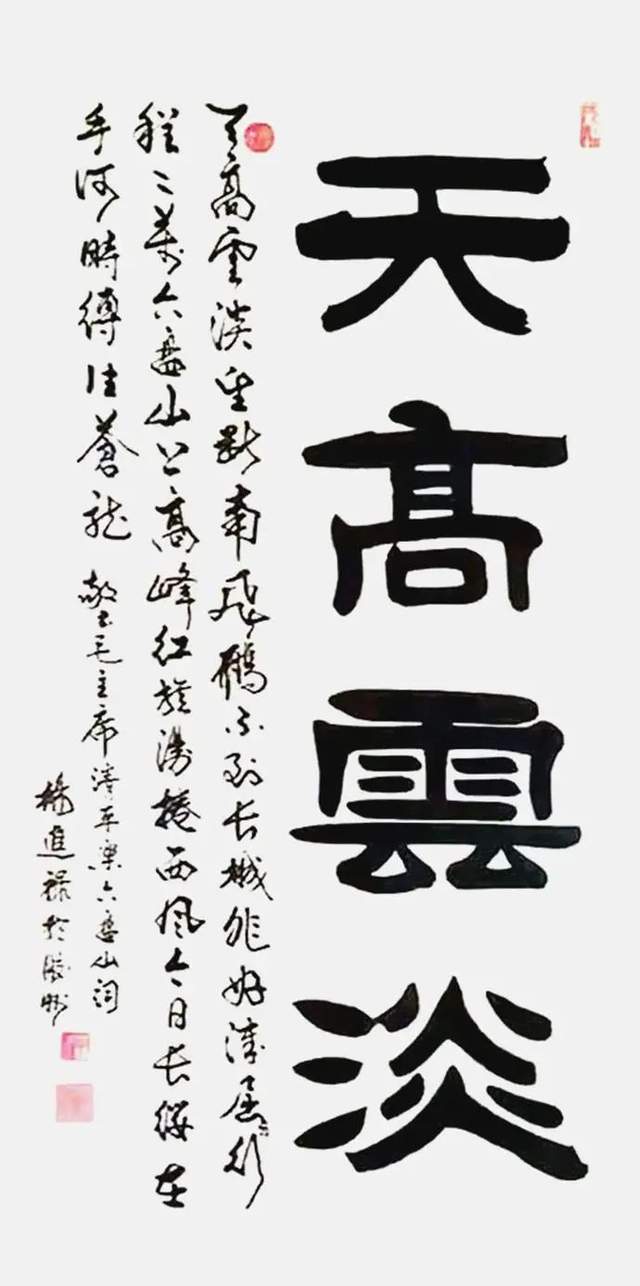 天高雲淡
天高雲淡望断南飛鴈不到长城非好漢屈行
程二萬六盤山上高峰紅旗漫捲西風今日长缨在
手何時縛住蒼龍 敬书毛主席清平樂六盤山詞
楊進禄於州